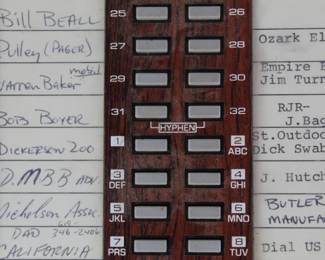 Bill Beall
25 26
Pulley (Pager)
27 28
Ozark El
Warren Baker
29 30
Empire E
Jim Turn
Bob Boyer
31 32
RJR-
J.Bag
HYPHEN
Dickerson 200
1 2
ABC
St.Outdoo
Dick Swab
D.MBB ADV
3 4
DEF GHI
J. Hutch
Nicholson Assc
5 6
JKL MNO
BUTLER
MANUFA
DAD 346-2406
CALIFORNIA
7 8
PRS TUV
Dial US